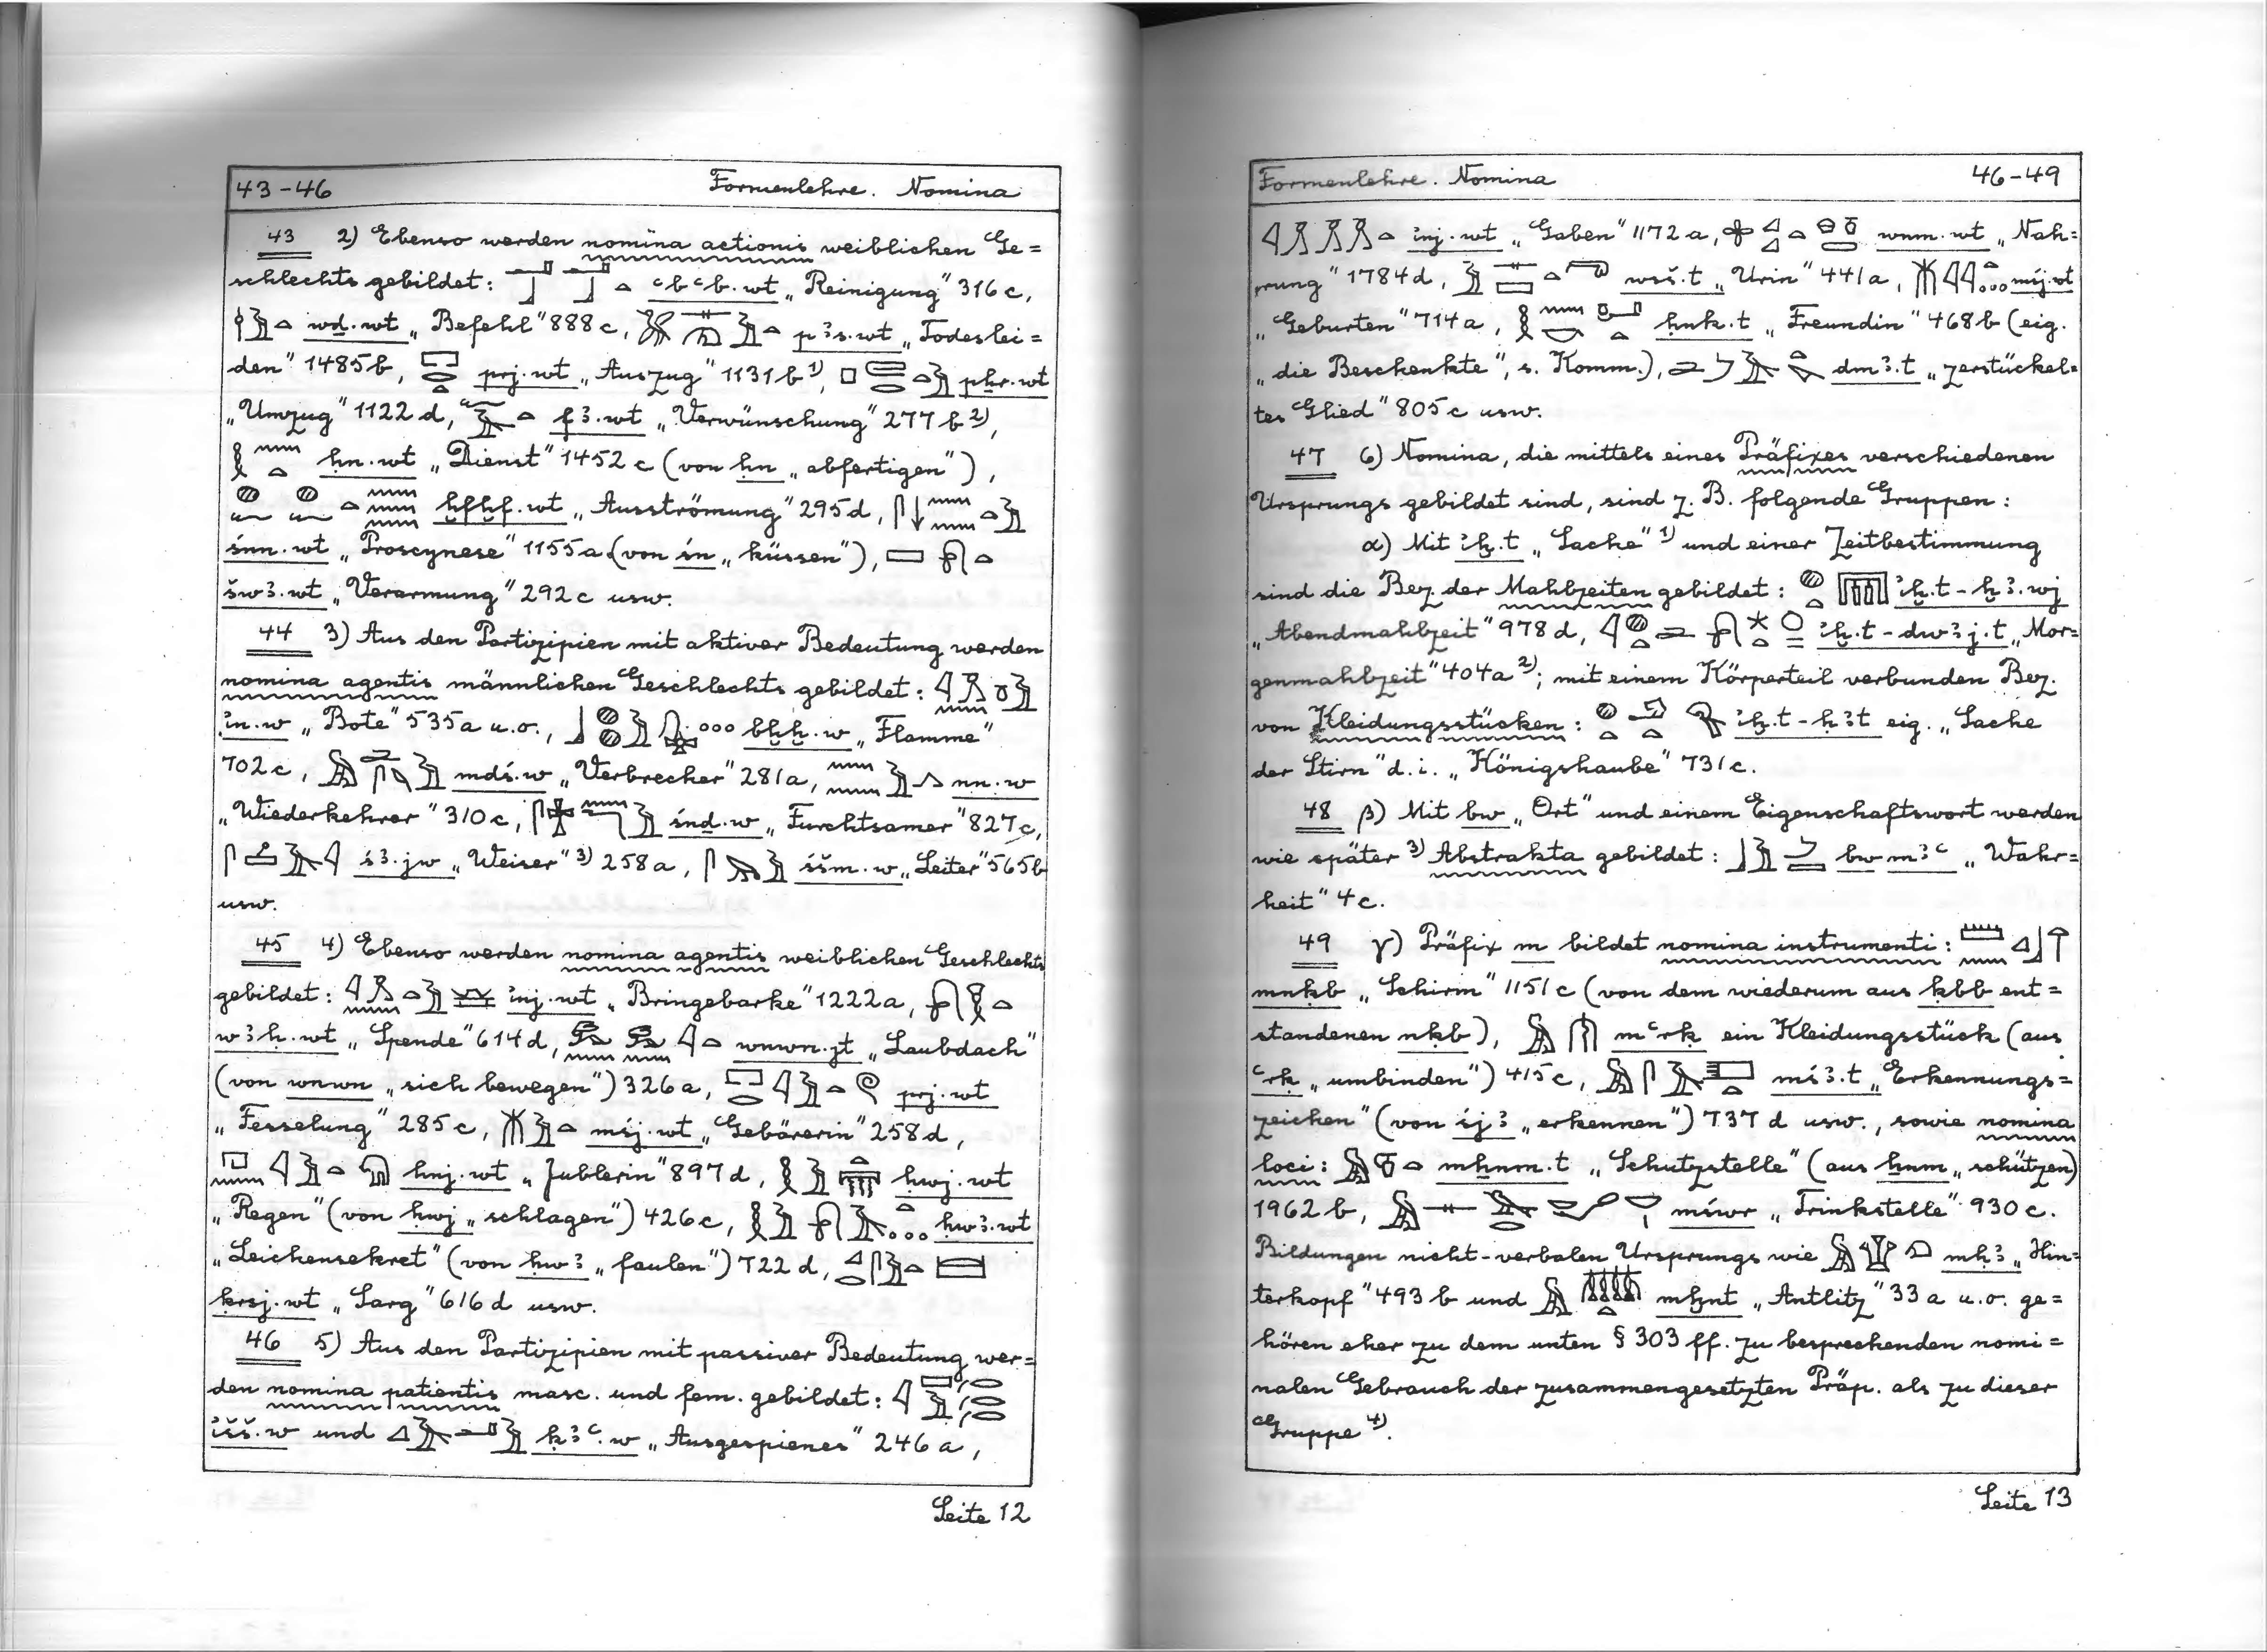 43-46 Formenlehre. Nomina
43 2) Ebenso werden nomina actionis weiblichen Ge=
schlechts gebildet: ꜥbꜥb.wt „Reinigung" 316c,
wḏ.wt „Befehl" 888c, pꜣs.wt „Todeslei=
den" 1485b, prj.wt „Auszug" 1131b¹⁾, pẖr.wt
„Umzug" 1122d, fꜣ.wt „Verwünschung" 277b²⁾,
ḥn.wt „Dienst" 1452c (von ḥn „abfertigen"),
ḫfḫf.wt „Ausströmung" 295d,
śnn.wt „Proscynese" 1155a (von śn „küssen"),
šwꜣ.wt „Verarmung" 292c usw.
44 3) Aus den Partizipien mit aktiver Bedeutung werden
nomina agentis männlichen Geschlechts gebildet:
ỉn.w „Bote" 535a u.o., bḫḫ.w „Flamme"
702c, mdś.w „Verbrecher" 281a, nn.w
„Wiederkehrer" 310c, śnḏ.w „Furchtsamer" 827c,
śꜣ.jw „Weiser"³⁾ 258a, śšm.w „Leiter" 565b
usw.
45 4) Ebenso werden nomina agentis weiblichen Geschlechts
gebildet: ỉnj.wt „Bringebarke" 1222a,
wꜣḥ.wt „Spende" 614d, wnwn.jt „Laubdach"
(von wnwn „sich bewegen") 326a, prj.wt
„Fesselung" 285c, mśj.wt „Gebärerin" 258d,
hnj.wt „Jublerin" 897d, ḥwj.wt
„Regen" (von ḥwj „schlagen") 426c, ḥwꜣ.wt
„Leichensekret" (von ḥwꜣ „faulen") 722d,
ḳrsj.wt „Sarg" 616d usw.
46 5) Aus den Partizipien mit passiver Bedeutung wer=
den nomina patientis masc. und fem. gebildet:
ỉšš.w und ḳꜣꜥ.w „Ausgespienes" 246a,
Seite 12
Formenlehre. Nomina 46-49
ỉnj.wt „Gaben" 1172a, wnm.wt „Nah=
rung" 1784d, wsš.t „Urin" 441a, mśj.wt
„Geburten" 714a, ḥnk.t „Freundin" 468b (eig.
„die Beschenkte", s. Komm.), dmꜣ.t „zerstückel=
tes Glied" 805c usw.
47 6) Nomina, die mittels eines Präfixes verschiedenen
Ursprungs gebildet sind, sind z. B. folgende Gruppen:
α) Mit ỉḫ.t „Sache"¹⁾ und einer Zeitbestimmung
sind die Bez. der Mahlzeiten gebildet: ỉḫ.t-ḫꜣ.wj
„Abendmahlzeit" 978d, ỉḫ.t-dwꜣj.t „Mor=
genmahlzeit" 404a²⁾; mit einem Körperteil verbunden Bez.
von Kleidungsstücken: ỉḫ.t-ḥꜣt eig. „Sache
der Stirn" d.i. „Königshaube" 731c.
48 β) Mit bw „Ort" und einem Eigenschaftswort werden
wie später³⁾ Abstrakta gebildet: bw mꜣꜥ „Wahr=
heit" 4c.
49 γ) Präfix m bildet nomina instrumenti:
mnḳb „Schirm" 1151c (von dem wiederum aus ḳbb ent=
standenen nḳb), mꜥrḳ ein Kleidungsstück (aus
ꜥrḳ „umbinden") 415c, mśꜣ.t „Erkennungs=
zeichen" (von śjꜣ „erkennen") 737d usw., sowie nomina
loci: mẖnm.t „Schutzstelle" (aus ẖnm „schützen)
1962b, mśwr „Trinkstelle" 930c.
Bildungen nicht-verbalen Ursprungs wie mḥꜣ „Hin=
terkopf" 493b und mḫnt „Antlitz" 33a u.o. ge=
hören eher zu dem unten § 303 ff. zu besprechenden nomi=
nalen Gebrauch der zusammengesetzten Präp. als zu dieser
Gruppe⁴⁾.
Seite 13